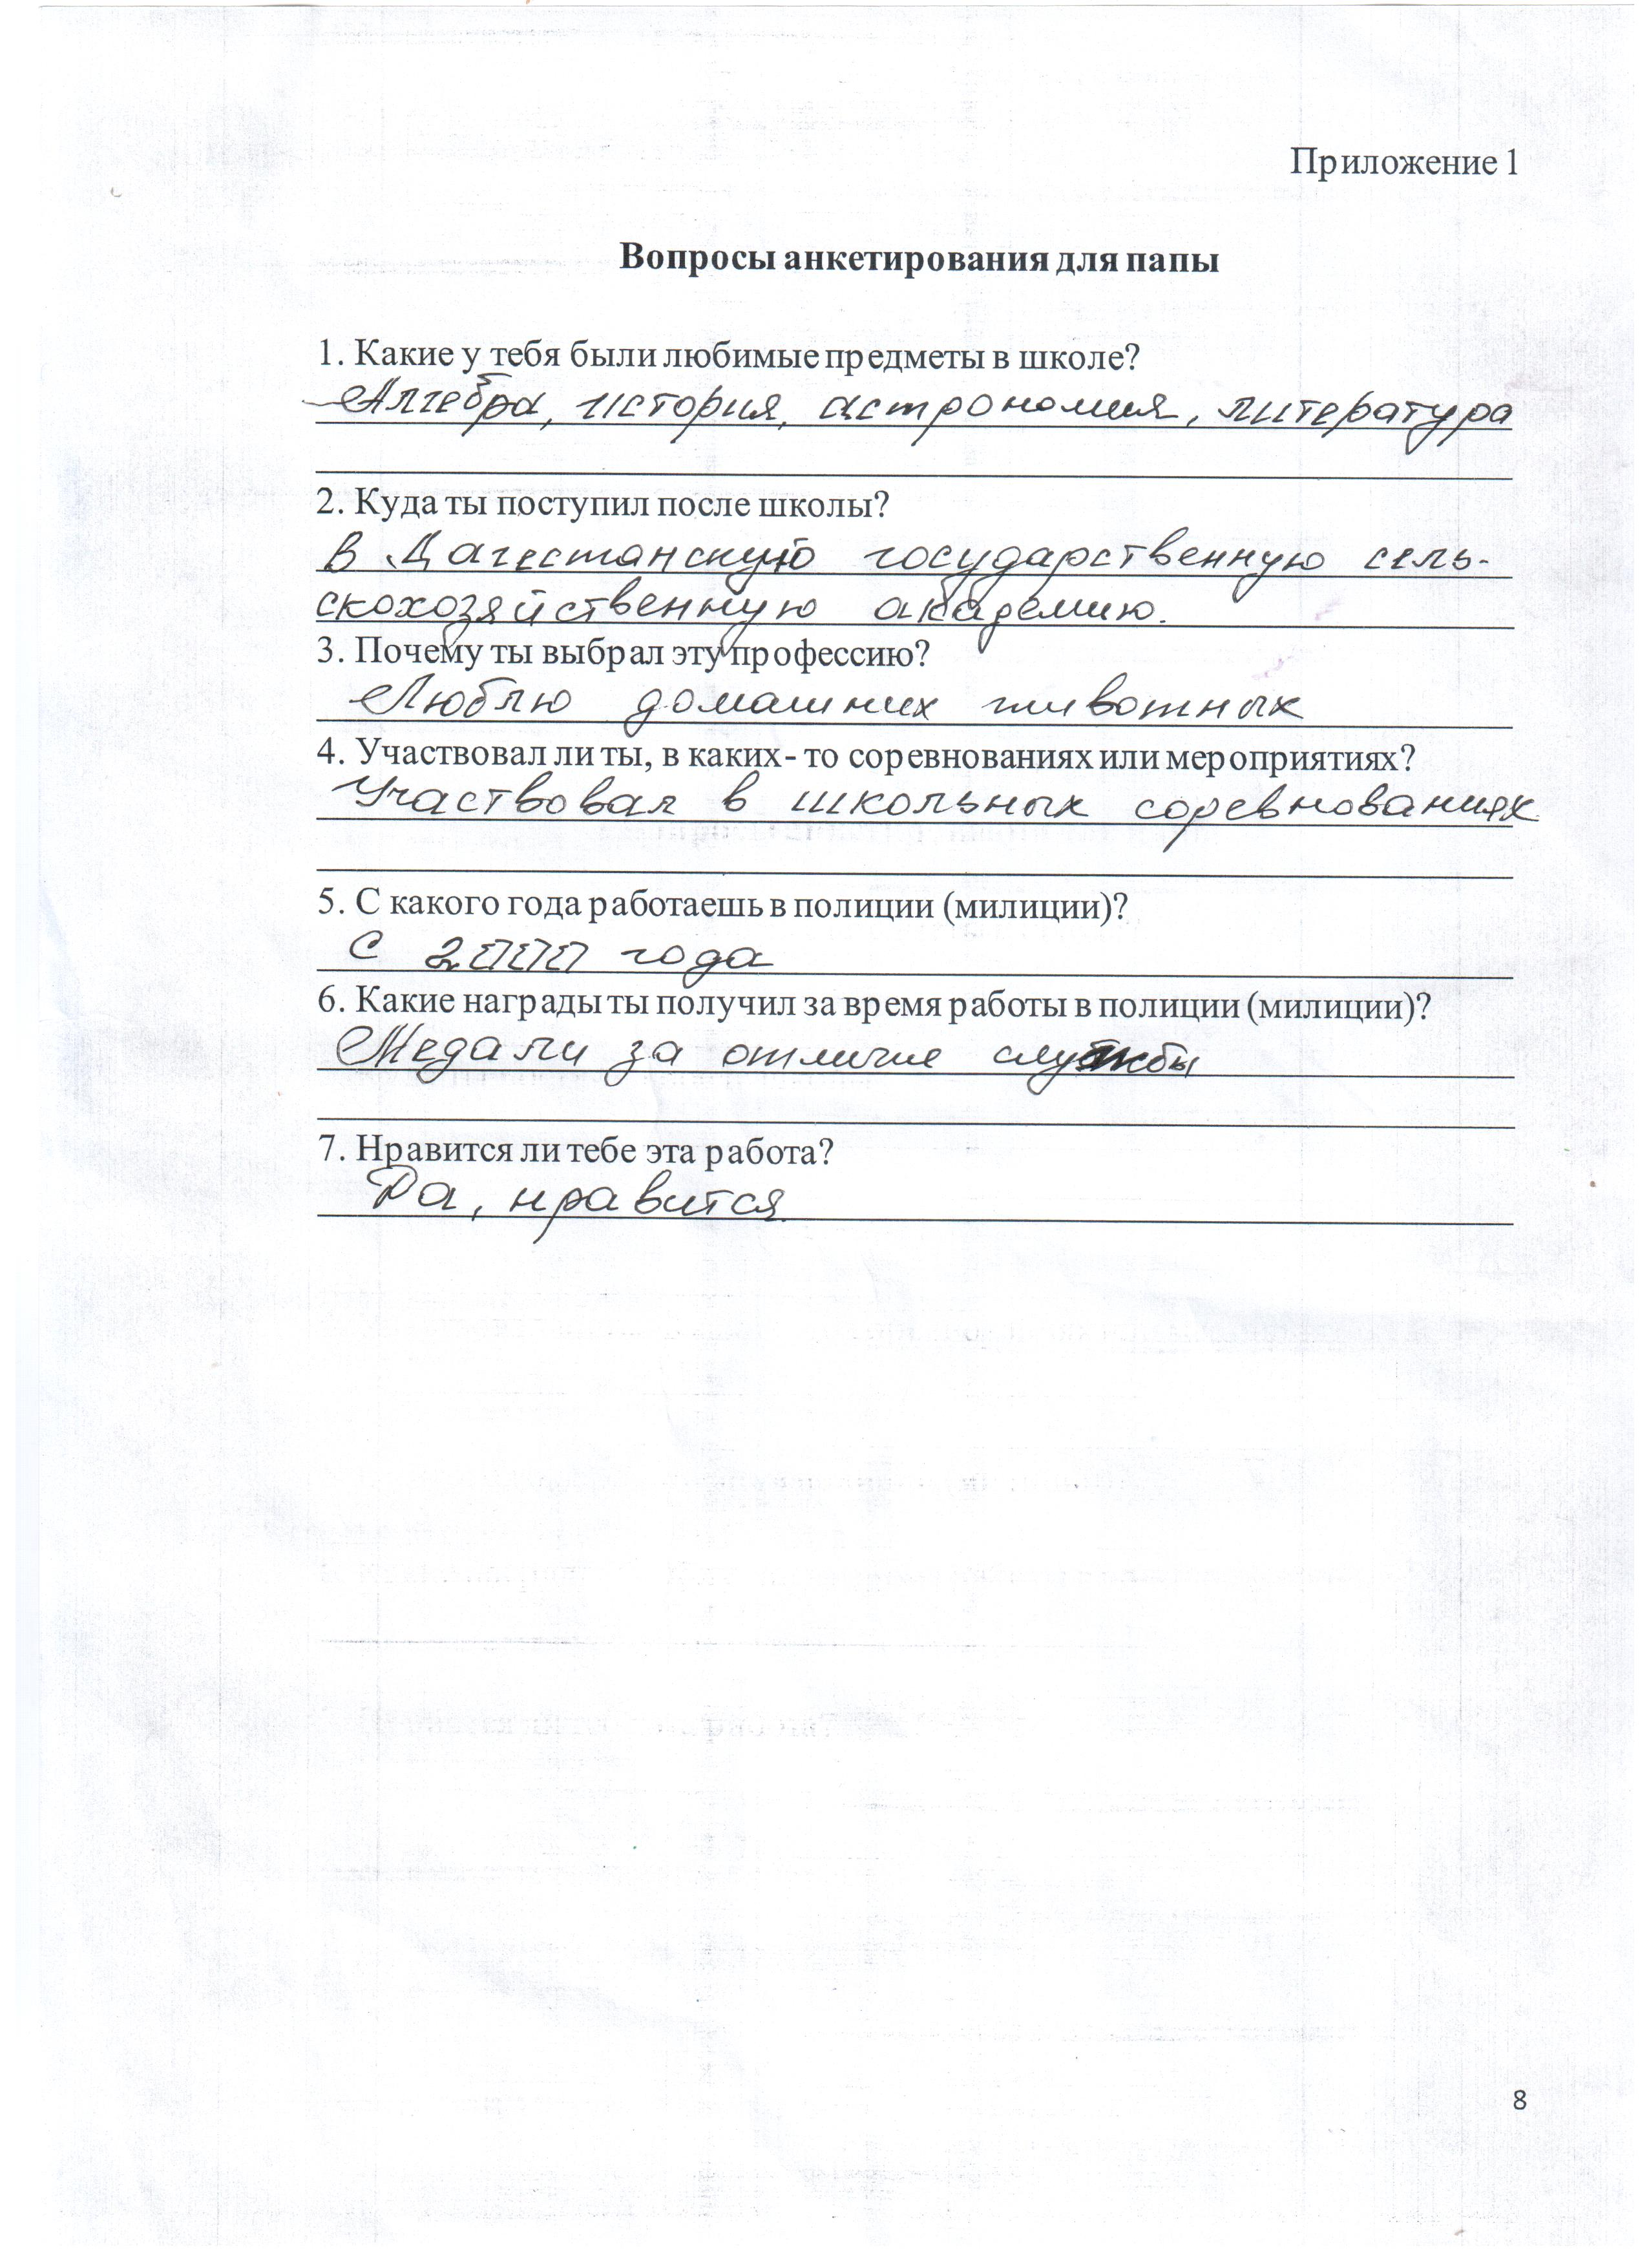 Приложение 1
Вопросы анкетирования для папы
1. Какие у тебя были любимые предметы в школе?
Алгебра, история, астрономия, литература
2. Куда ты поступил после школы?
в Дагестанскую государственную сель-
скохозяйственную академию.
3. Почему ты выбрал эту профессию?
Люблю домашних животных
4. Участвовал ли ты, в каких- то соревнованиях или мероприятиях?
Участвовал в школьных соревнованиях
5. С какого года работаешь в полиции (милиции)?
С 2000 года
6. Какие награды ты получил за время работы в полиции (милиции)?
Медали за отличие службы
7. Нравится ли тебе эта работа?
Да, нравится
8